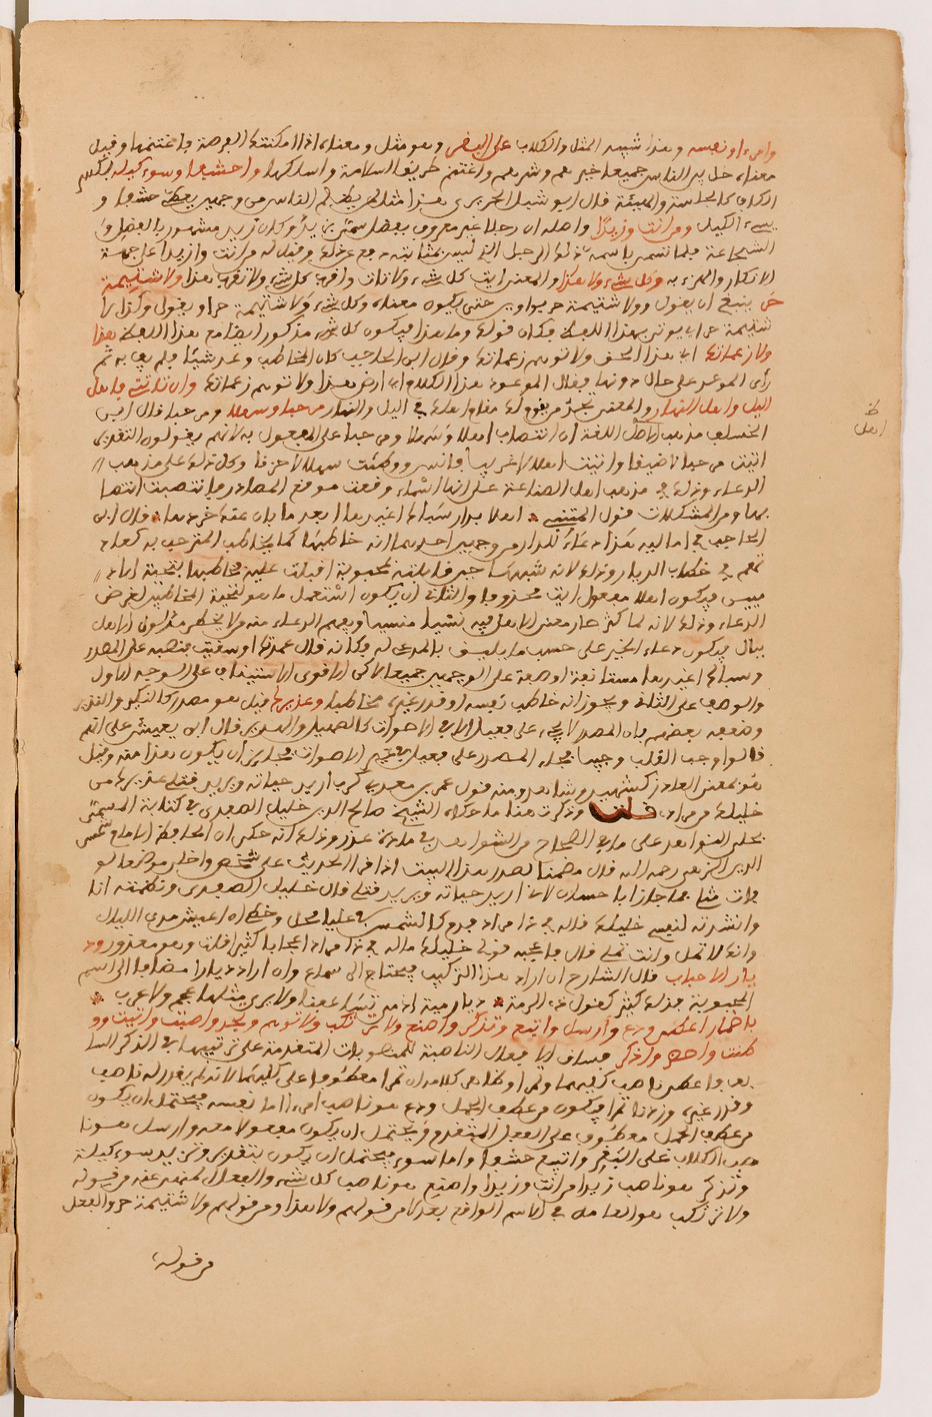 وامرءا ونفسه وهذا شبيه المثل والكلاب على البقر وهو مثل ومعناه اذا امكنتك الفرصة فاغتنمها وقيل
معناه خل بين الناس جميعا خيرهم وشرهم واغتنم طريق السلامة واسلكها واحشفا وسوء كيلة بكسر
الكاف كالجلسة والهيئة قال ابو شبل الحريري هذا مثل لمن يظلم الناس من وجهين يعطي حشفا و
يسيء الكيل ومن انت وزيدا واصله ان رجلا غير معروف بفضل سمى زيد وكان زيد مشهور بالفضل و
الشجاعة فلما تسمى باسمه ذلك الرجل الذي ليس بمثابته دفع عن ذلك وقيل له من انت وازيدا على جهة
الانكار والهزء به وكل شيء ولا هذا والمعنى ايت كل شيء ولا تات واقرب كل شيء ولا تقرب هذا ولا شتيمة
حر ينبغي ان يقول وولا شتيمة حر بواوين حتى يكون معناه وكل شيء ولا شتيمة حر او يقول وكذا لا
شتيمة حر اي يوتى بهذا اللفظ فكان قوله وما بعدا فيكون كل شيء مذكور ايضا مع هذا اللفظ هذا
ولا زعماتك اي هذا الحق ولا توهم زعماتك وقال ابن الحاجب كان المخاطب وعد شيئا فلم يف به ثم
رأى الموعد على حال دونها فقال الموعود هذا الكلام اي ارضى هذا ولا توهم زعماتك وان تاتني فاهل
الليل واهل النهار والمعنى تجد من يقوم لك مقام اهلك في الليل والنهار مرحبا وسهلا ومرحبا قال ابن
اهل
الخشاب مذهب اهل اللغة ان انتصاب اهلا وسهلا ومرحبا على المفعول به لانهم يقولون التقدير
اتيت مرحبا لا ضيقا واتيت اهلا لا غريبا فانس ووطئت سهلا لا حزنا وكل ذلك على مذهب
الدعاء وذلك في مذهب اهل الصناعة على انها اسماء وقعت موقع المصادر فانتصبت انتصا
بها ومن المشكلات قول المتنبي اهلا بدار سباك اغيدها ابعد ما بان عنك خردها قال ابن
الحاجب في اماليه هذا دعاء للدار من وجهين احدهما انه خاطبها كما يخاطب المترحب به كعاد
تهم في خطاب الديار وذلك لانه شبهها حين فابلته بمحبوبة اقبلت عليه مخاطبها بتحية
فيكون اهلا مفعول ايت محذوفا والثاني ان يكون استعمل ما هو لتحية المخاطبين لغرض
الدعاء وذلك لانه لما كثر صار معنى الاهل فيه نسيا منسيا ويفهم الدعاء منه ولا يخطر
ببال فيكون دعاء الخير على حسب ما يليق بالمدعى له فكانه قال عمرك او سقيت فنصبه على المصدر
وسباك اغيدها مستانفة او صفة على الوجهين جميعا لاكن الاقوى الاستيناف على الوجه الاول
والوصف على الثاني ويجوز انه خاطب نفسه او قدر غيره مخاطبا وعذيرك قيل هو مصدر كالنكير والتقدير
وضعفه بعضهم بان المصدر لا يجيء على فعيل الا في الاصوات كالصهيل والهدير قال ابن يعيش على انهم
قالوا وجب القلب وجيبا فجاء المصدر على فعيل في غير الاصوات فجايز ان يكون هذا منه وقيل
هو بمعنى العاذر كشهيد وشاهد ومنه قول عمرو بن معدي كرب اريد حياته ويريد قتلي عذيرك من
خليلك من مراد قلت وذكرت هنا ما حكاه الشيخ صلاح الدين خليل الصفدي في كتابه المسمى
بحلي النواهد على ما في الصحاح من الشواهد في مادة عذر وذلك انه حكى ان الحافظ الامام شمس
الدين الذهبي رحمه الله قال مضمنا لصدر هذا البيت اذا قرا الحديث علي شخص واخلى موضعا لو
فات مثلي فما جازا باحسان لاني اريد حياته ويريد قتلي قال خليل الصفدي ونظمته انا
وانشدته لنفسي خليلك قاله في ذا مراد فدم كالشمس في عليا محل وحظي ان اعيش مدى الليالي
وانك لا تمل وانت تملي قال فاعجبه قولي خليلك ماله في ذا مراد اعجابا كثيرا قلت وهو معذور ود
يار الاحباب قال الشارح ان اراد هذا التركيب فيحتاج الى سماع وان اراد ديارا مضافا الى اسم
المحبوبة فذلك كثير كقول ذي الرمة ديار مية اذ مي تساعفنا ولا يرى مثلها عجم ولا عرب
باضمار اعطني ودع وارسل واتبيع وتذكر واصنع ولا ترتكب ولا توهم وتجد واصبت واتيت وو
طئت واحضر واذكر فساق الافعال الناصبة للمنصوبات المتقدمة على ترتيبها في الذكر السا
بق فاعطني ناصب كليهما وتمرا وظاهر كلامه ان تمرا معطوفا على كليهما لانه لم يقدر له ناصب
وقدر غيره وزدني تمرا فيكون من عطف الجمل ودع هو ناصب امرءا اما نفسه فيحتمل ان يكون
من عطف الجمل معطوف على الفعل المتقدم ويحتمل ان يكون مفعولا معه وارسل هو نا
صب الكلاب على البقر واتبيع حشفا واما سوء فيحتمل ان يكون بتقدير وتزيد سوء كيلة
وتذكر هو ناصب زيدا من انت وزيدا واصنع هو ناصب كل شيء والفعل المنفي عنه من قوله
ولا ترتكب هو العامل في الاسم الواقع بعد لا من قولهم ولا هذا ومن قولهم ولا شتيمة حر والفعل
من قوله